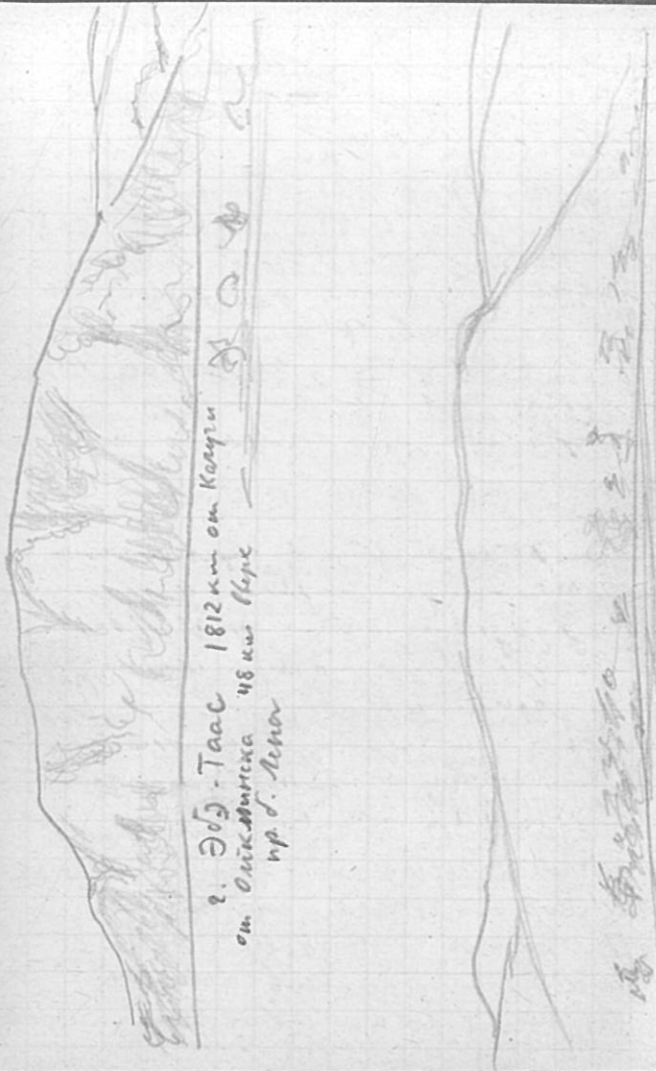 г. Эбэ-Таас 1812 км от Качуги
от Олёкминска 48 км вверх
пр. б. Лены